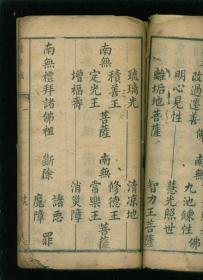 改過遷善
明心見性
離垢地菩薩
九池鍊性佛
慧光照世
智力王菩薩
琉璃光
南無積善王菩薩
定光王
增福壽
清凉地
南無修德王菩薩
當樂王
消災障
南無禮拜諸佛祖
斷除
諸惡罪
魔障